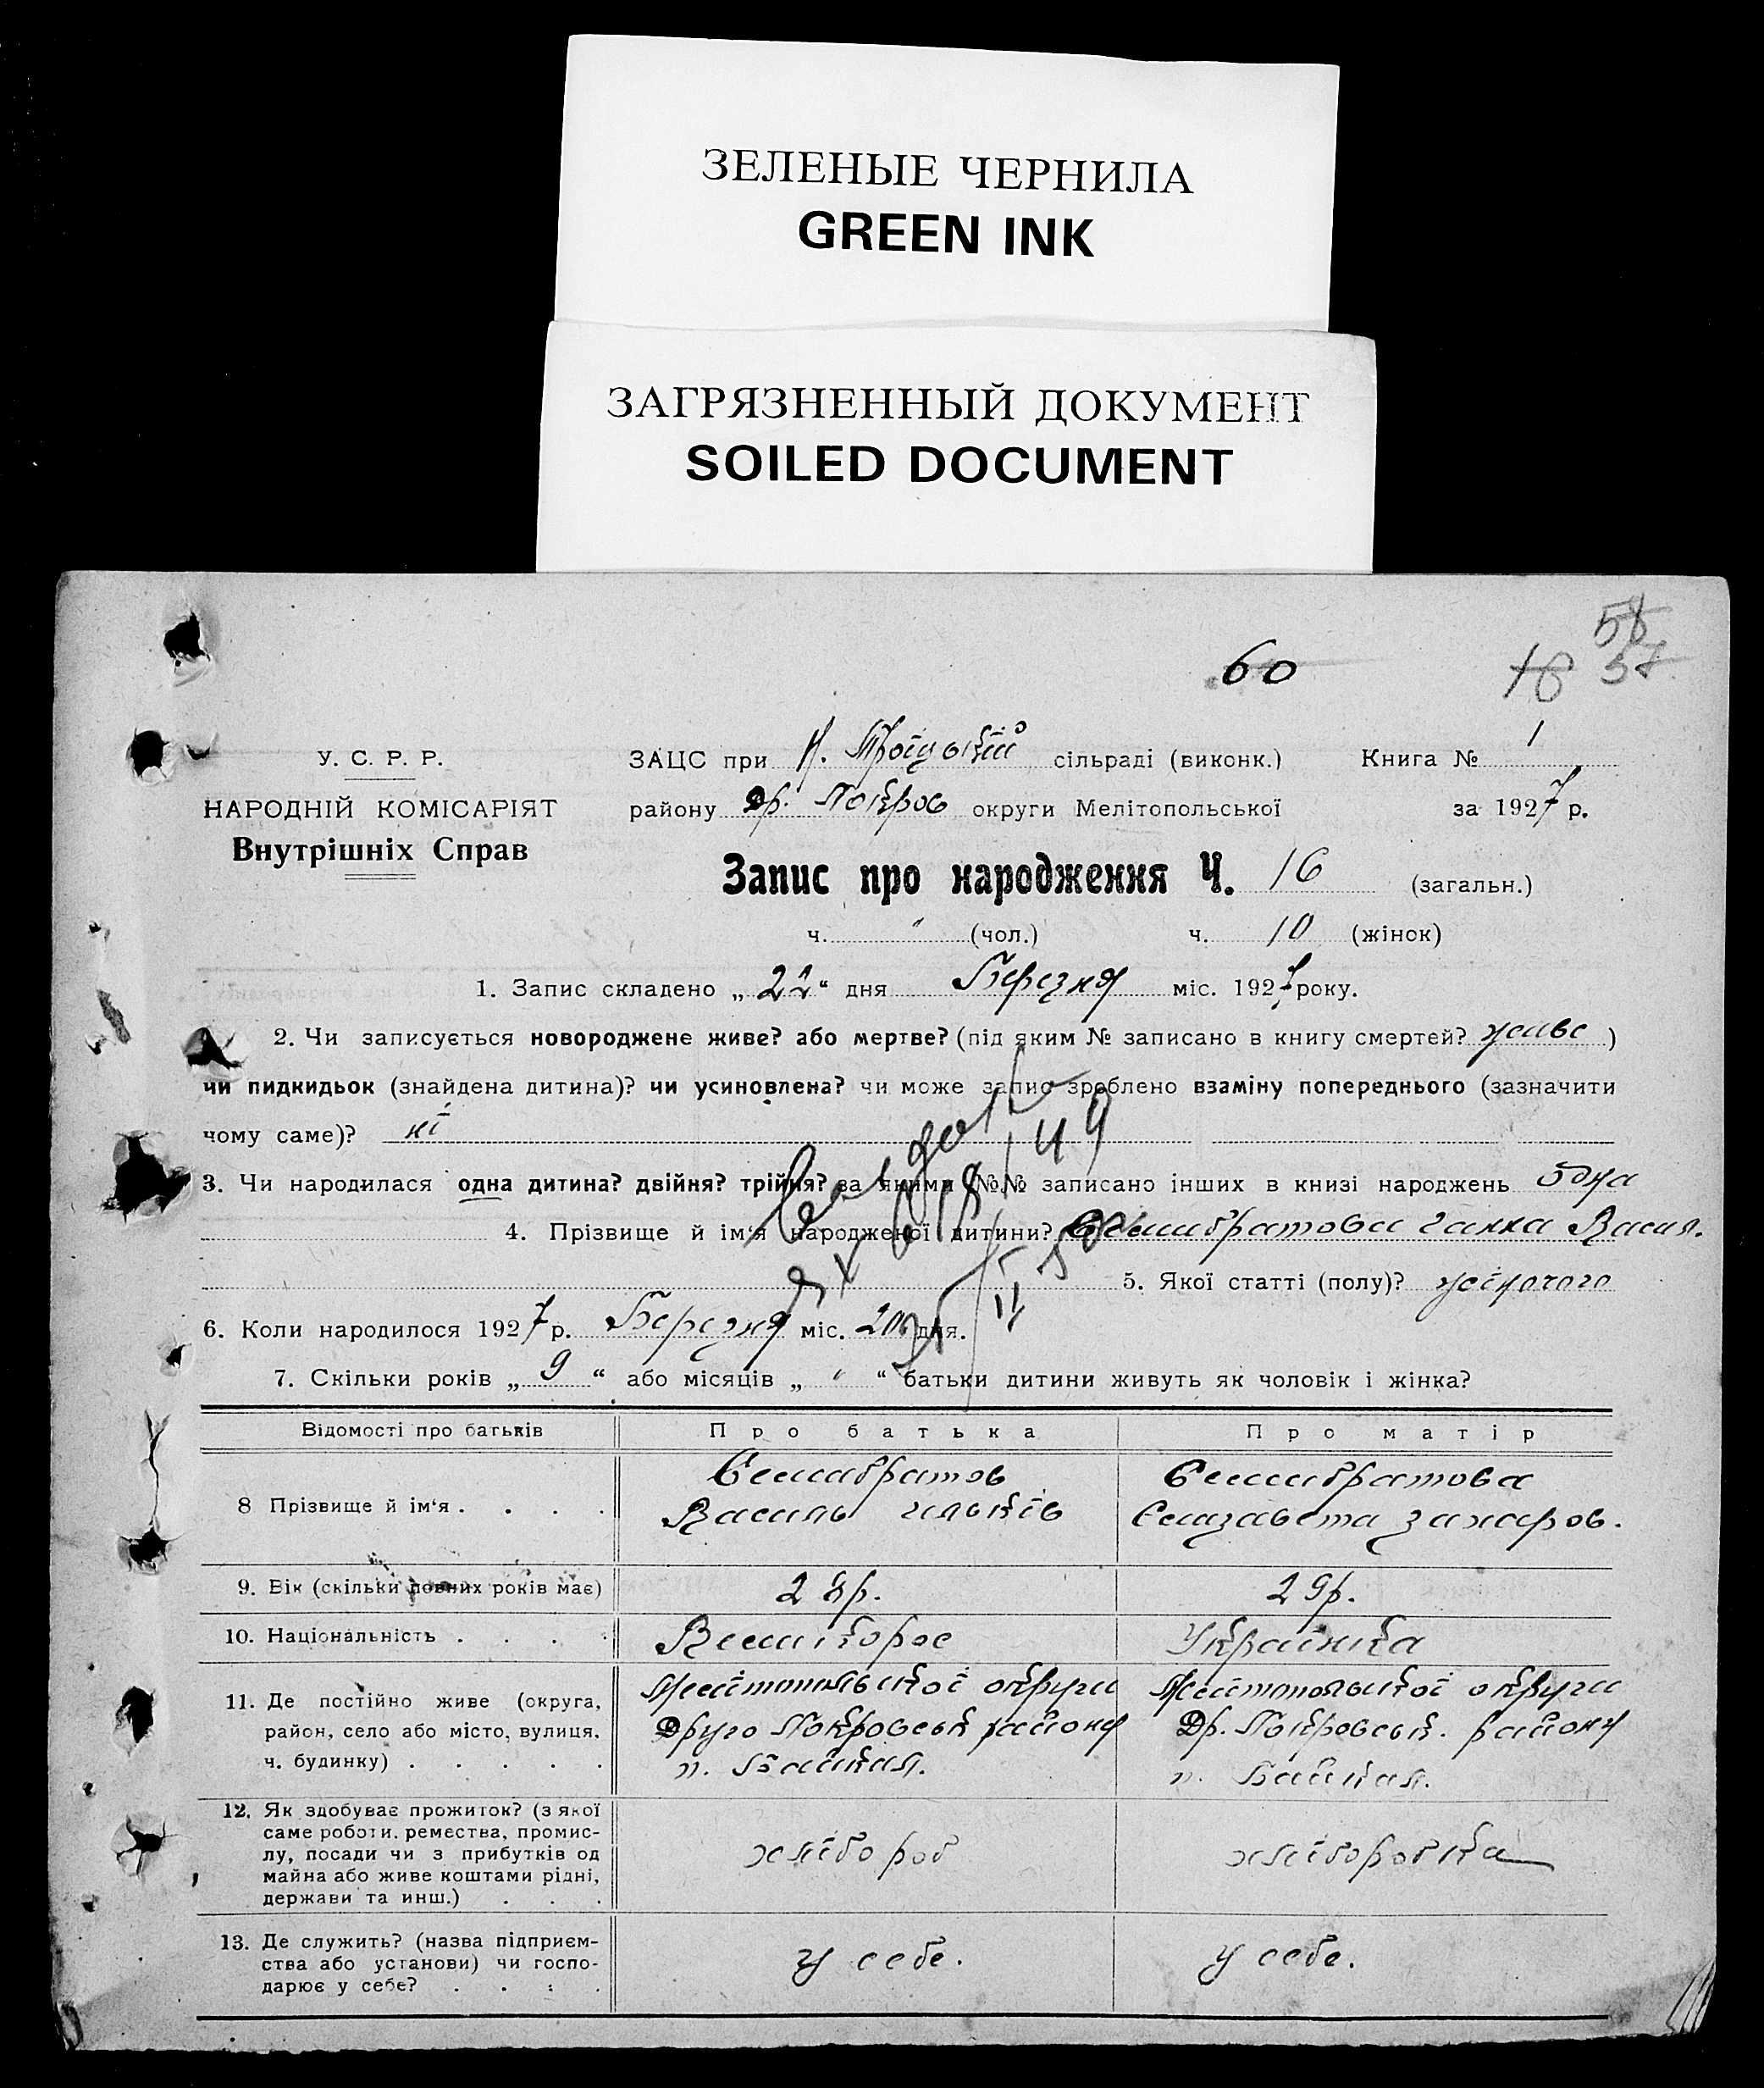 ЗЕЛЕНЫЕ ЧЕРНИЛА
GREEN INK
ЗАГРЯЗНЕННЫЙ ДОКУМЕНТ
SOILED DOCUMENT
58
60 18 57
У. С. Р. Р.
НАРОДНІЙ КОМІСАРІЯТ
Внутрішніх Справ
ЗАЦС при Н. Троїцькій сільраді (виконк.) Книга № 1
району Др. Покров округи Мелітопольської за 1927 р.
Запис про народження Ч. 16 (загальн.)
ч. " (чол.) ч. 10 (жінок)
1. Запис складено „ 22 “ дня Березня міс. 1927 року.
2. Чи записується новороджене живе? або мертве? (під яким № записано в книгу смертей? живе )
чи пидкидьок (знайдена дитина)? чи усиновлена? чи може запис зроблено взаміну попереднього (зазначити
чому саме)? ні
3. Чи народилася одна дитина? двійня? трійня? за якими №№ записано інших в книзі народжень одна
4. Прізвище й ім‘я народженої дитини? Семибратова Ганна Васил.
5. Якої статті (полу)? жіночого
6. Коли народилося 1927 р. Березня міс. 20 дня.
7. Скільки років „ 9 “ або місяців „ " “ батьки дитини живуть як чоловік і жінка?
Відомості про батьків Про батька Про матір
8 Прізвище й ім‘я . . . .
Семибратов
Василь Ільків
Семибратова
Єлизавета Захаров.
9. Вік (скільки повних років має) 28р. 29р.
10. Національність . . . . Великорос Українка
11. Де постійно живе (округа,
район, село або місто, вулиця,
ч. будинку) . . . . .
Мелітопольської округи
Друго Покровськ району
п. Байкал.
Мелітопольської округи
Др. Покровськ. району
п. Байкал.
12. Як здобуває прожиток? (з якої
саме роботи. ремества, промис-
лу, посади чи з прибутків од
майна або живе коштами рідні,
держави та инш.) . . .
хлібороб хліборобка
13. Де служить? (назва підприєм-
ства або установи) чи госпо-
дарює у себе? . . . .
у себе. у себе.